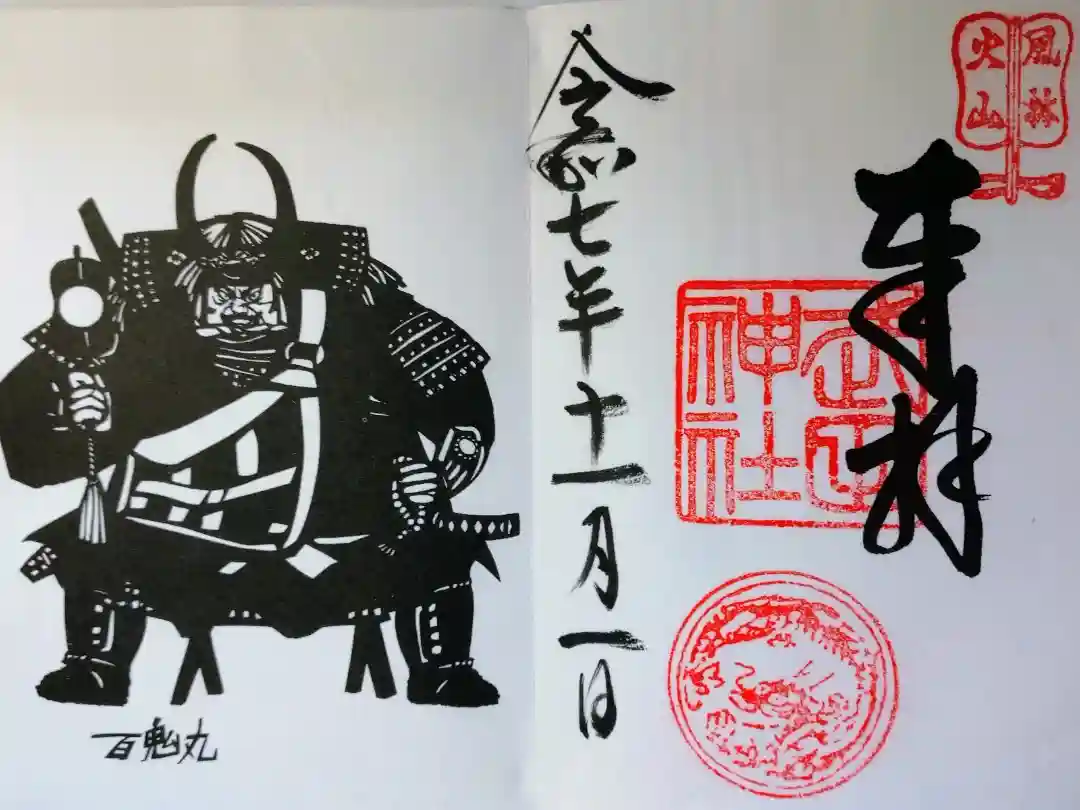 風林
火山
奉拝
武田
神社
令和七年十一月一日
百鬼丸